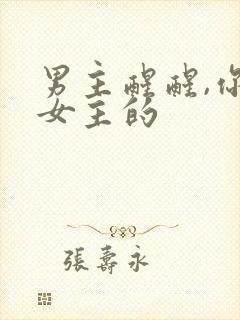 男主醒醒,你
女主的
張壽永